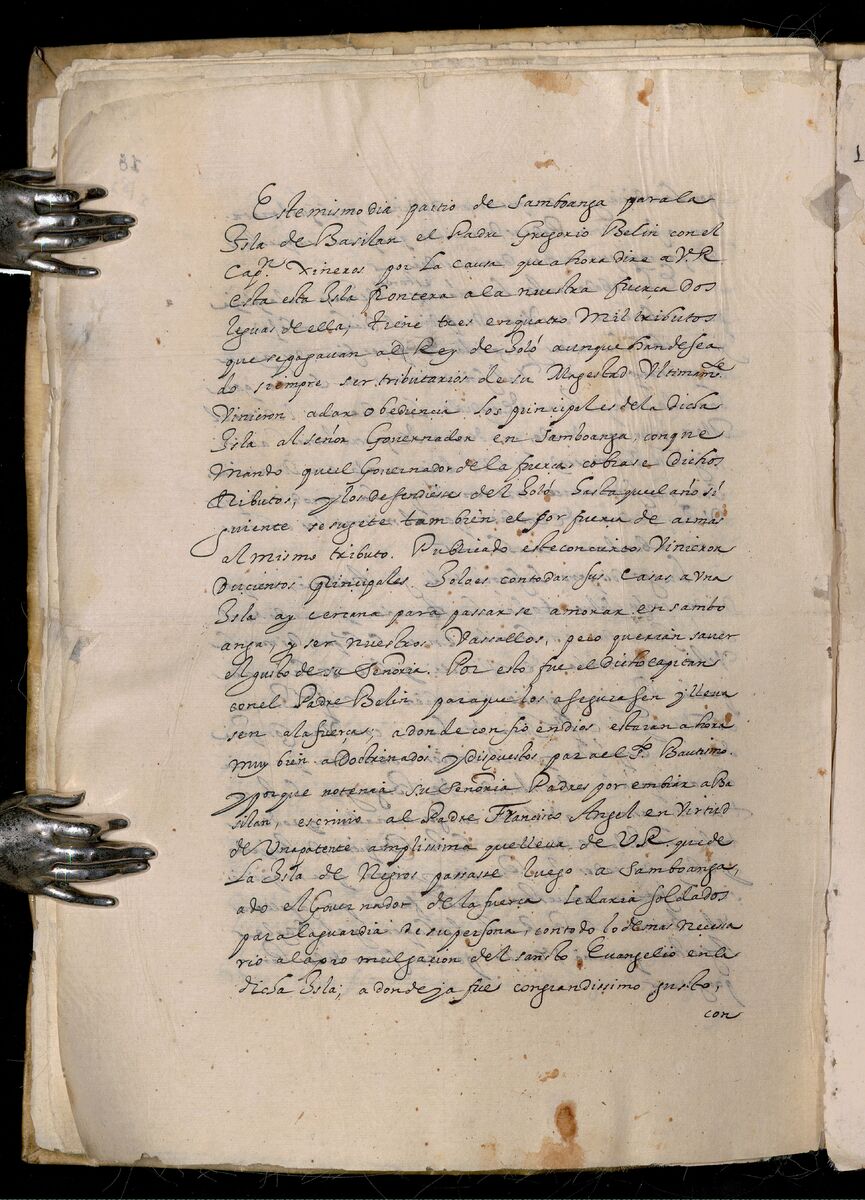 Este mismo dia partio de Samboanga para la
Isla de Basilan el Padre Gregorio Belin con el
Cap.n Xineros por la causa que ahore dire a V.R
esta esta Isla frontera a la nuestra fuerça dos
leguas de ella, tiene tres en quatro Mil tributos
que se pagavan al Rey de Joló aunque han desea
do siempre ser tributarios de su Magestad Ultimam.te
Vinieron adar obediencia los principales de la dicha
Isla al señor Governador en Samboanga, con que
Mando que el Governador de la fuerça cobrase dichos
tributos, y los defendiese del Joló hasta que el año si
guiente se sugete tambien el por fuerça de armas
al mismo tributo. Publicado este concierto Vinieron
Ducientos principales Joloes con todas sus casas a una
Isla ay cercana para passarse a morar en Sambo
anga, y ser nuestros Vassallos, pero querian saver
el gusto de su Señoria. Por esto fue el dicho capitan
con el Padre Belin para que los asegurasen y lleva
sen a la fuerça; adonde confio en dios estaran ahora
muy bien adoctrinados y dispuestos para el S. Bautismo.
y porque no tenia su Señoria Padres por embiar a Ba
silan, escrivio al Padre Francisco Angel en Virtud
de Una patente amplissima que lleva de V.R. que de
la Isla de Negros passase luego a Samboanga,
ado el Governador de la fuerça le daria soldados
para la guardia de su persona, con todo lo demas necesa
rio a la promulgacion del sancto Evangelio en la
dicha Isla; adonde ya fue con grandissimo gusto,
con